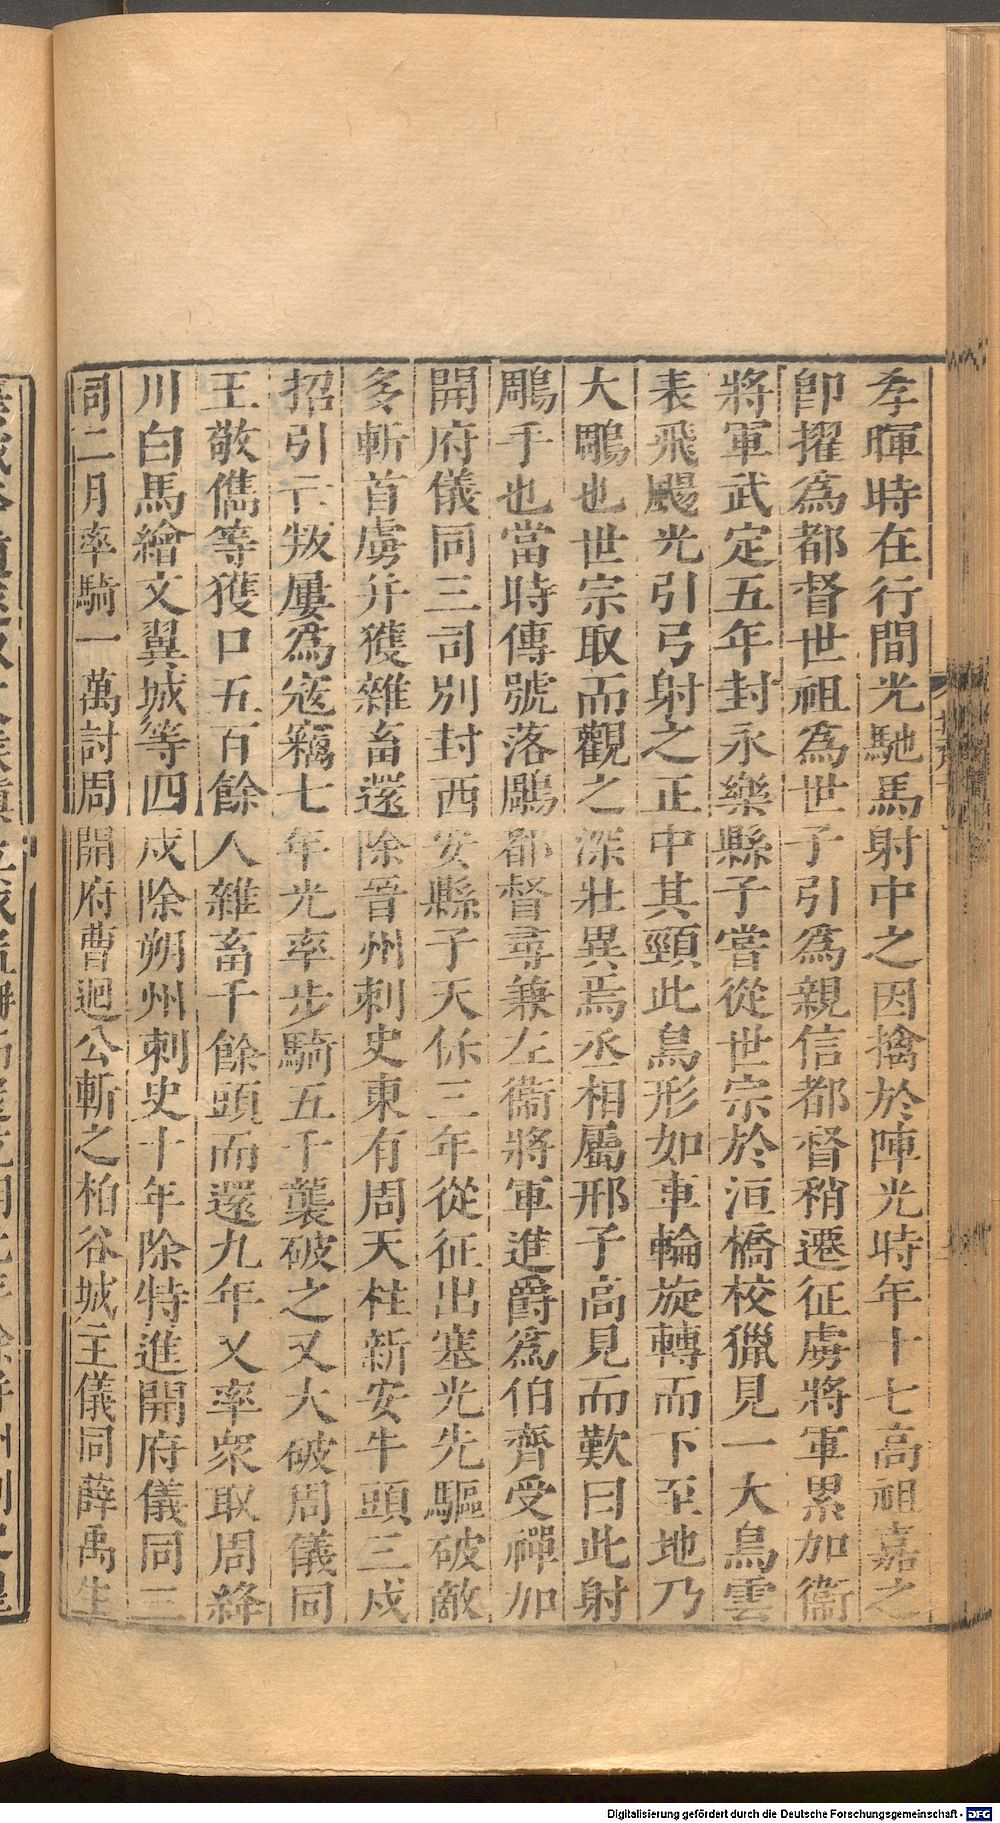 孝暉時在行間光馳馬射中之因擒於陣光時年十七高祖嘉之
卽擢爲都督世祖爲世子引爲親信都督稍遷征虜將軍累加衞
將軍武定五年封永樂縣子嘗從世宗於洹橋校獵見一大鳥雲
表飛颺光引弓射之正中其頸此鳥形如車輪旋轉而下至地乃
大鵰也世宗取而觀之深壯異焉丞相屬邢子高見而歎曰此射
鵰手也當時傳號落鵰都督尋兼左衞將軍進爵爲伯齊受禪加
開府儀同三司別封西安縣子天保三年從征出塞光先驅破敵
多斬首虜并獲雜畜還除晉州刺史東有周天柱新安牛頭三戍
招引亡叛屢爲寇竊七年光率步騎五千襲破之又大破周儀同
王敬儁等獲口五百餘人雜畜千餘頭而還九年又率衆取周絳
川白馬繪文翼城等四戍除朔州刺史十年除特進開府儀同三
司二月率騎一萬討周開府曹迴公斬之柏谷城主儀同薛禹生
Digitalisierung gefördert durch die Deutsche Forschungsgemeinschaft - DFG